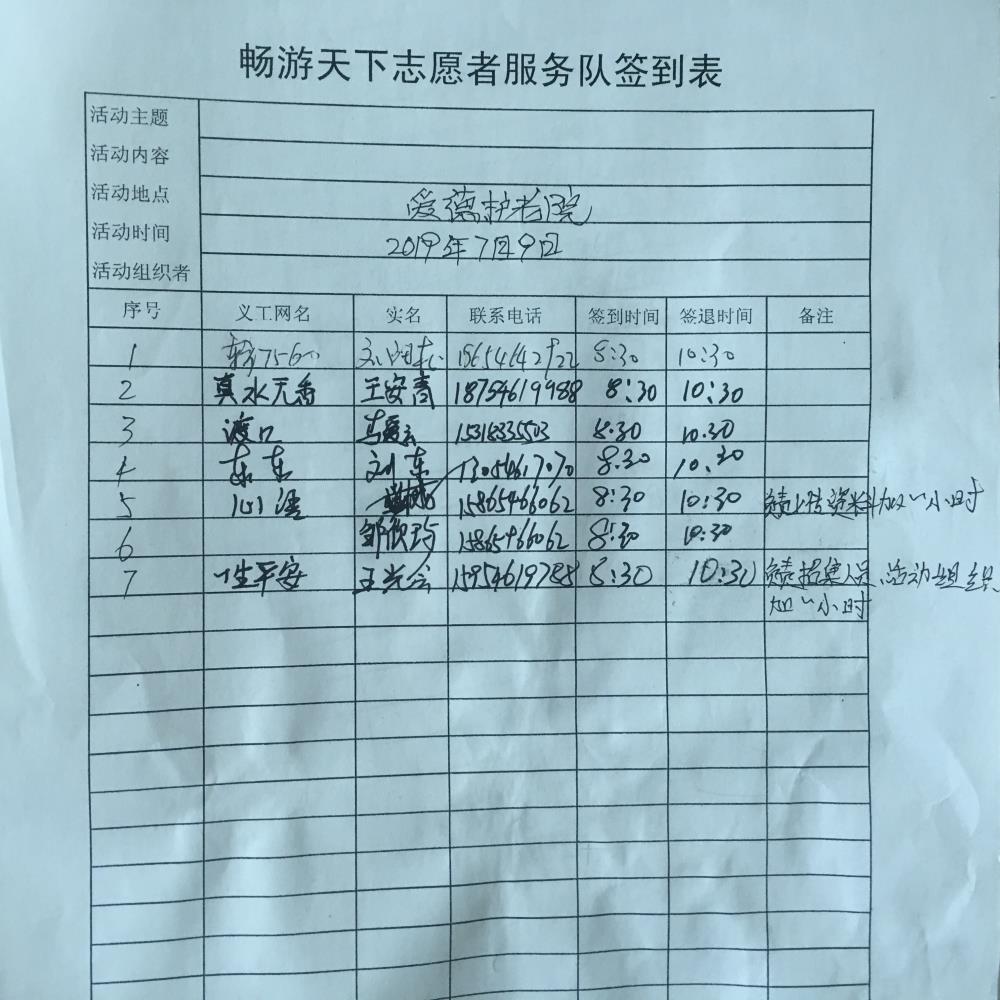 畅游天下志愿者服务队签到表
活动主题
活动内容
活动地点 爱德护老院
活动时间 2019年7月9日
活动组织者
序号 义工网名 实名 联系电话 签到时间 签退时间 备注
1 8:30 10:30
2 真水无香 王安青 18754619988 8:30 10:30
3 渡口 15318335503 8:30 10:30
4 东东 刘东 13054617070 8:30 10:30
5 15865466062 8:30 10:30 负责上传资料加一小时
6 邹欣玙 15865466062 8:30 10:30
7 一生平安 王光会 15954619788 8:30 10:30 负责招募人员、活动组织
加一小时